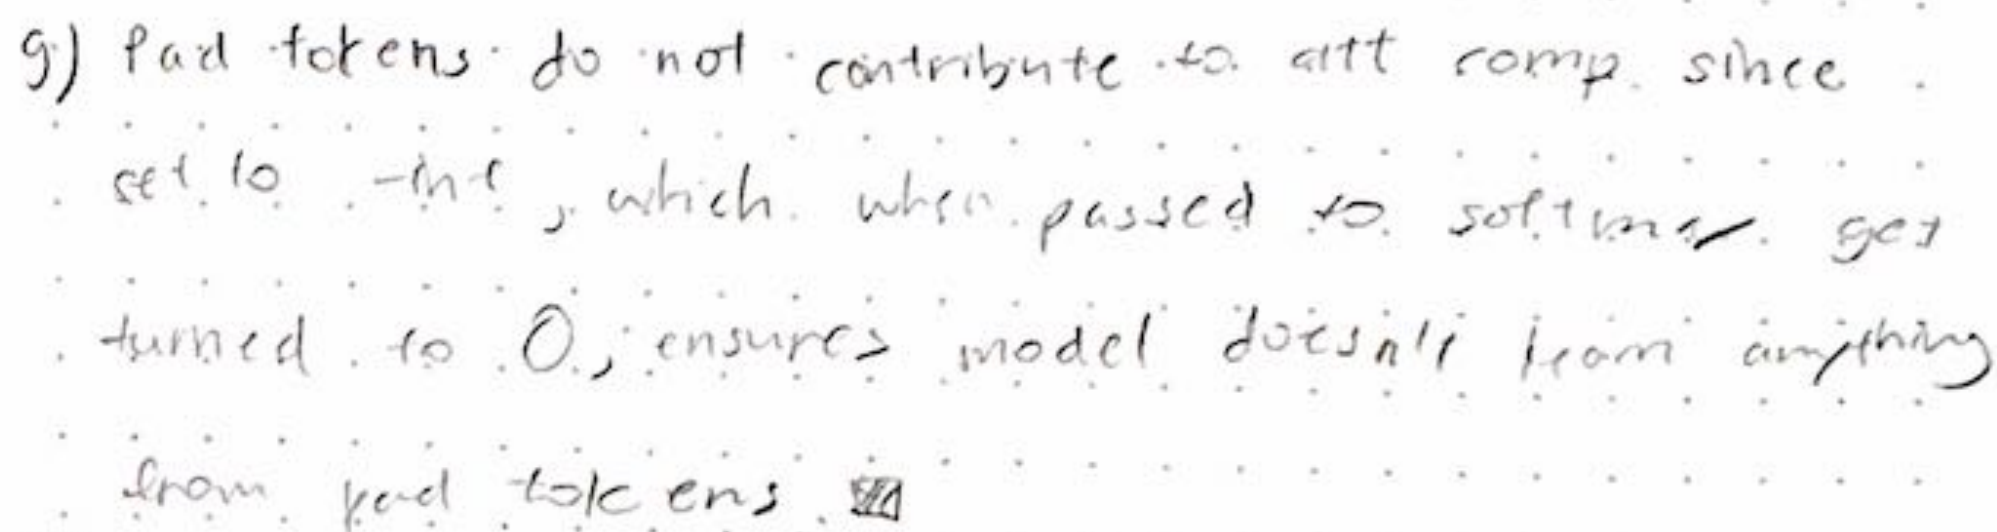 g) Pad tokens do not contribute to att comp. since
set to -inf, which when passed to softmax get
turned to 0, ensures model doesn't learn anything
from pad tokens.